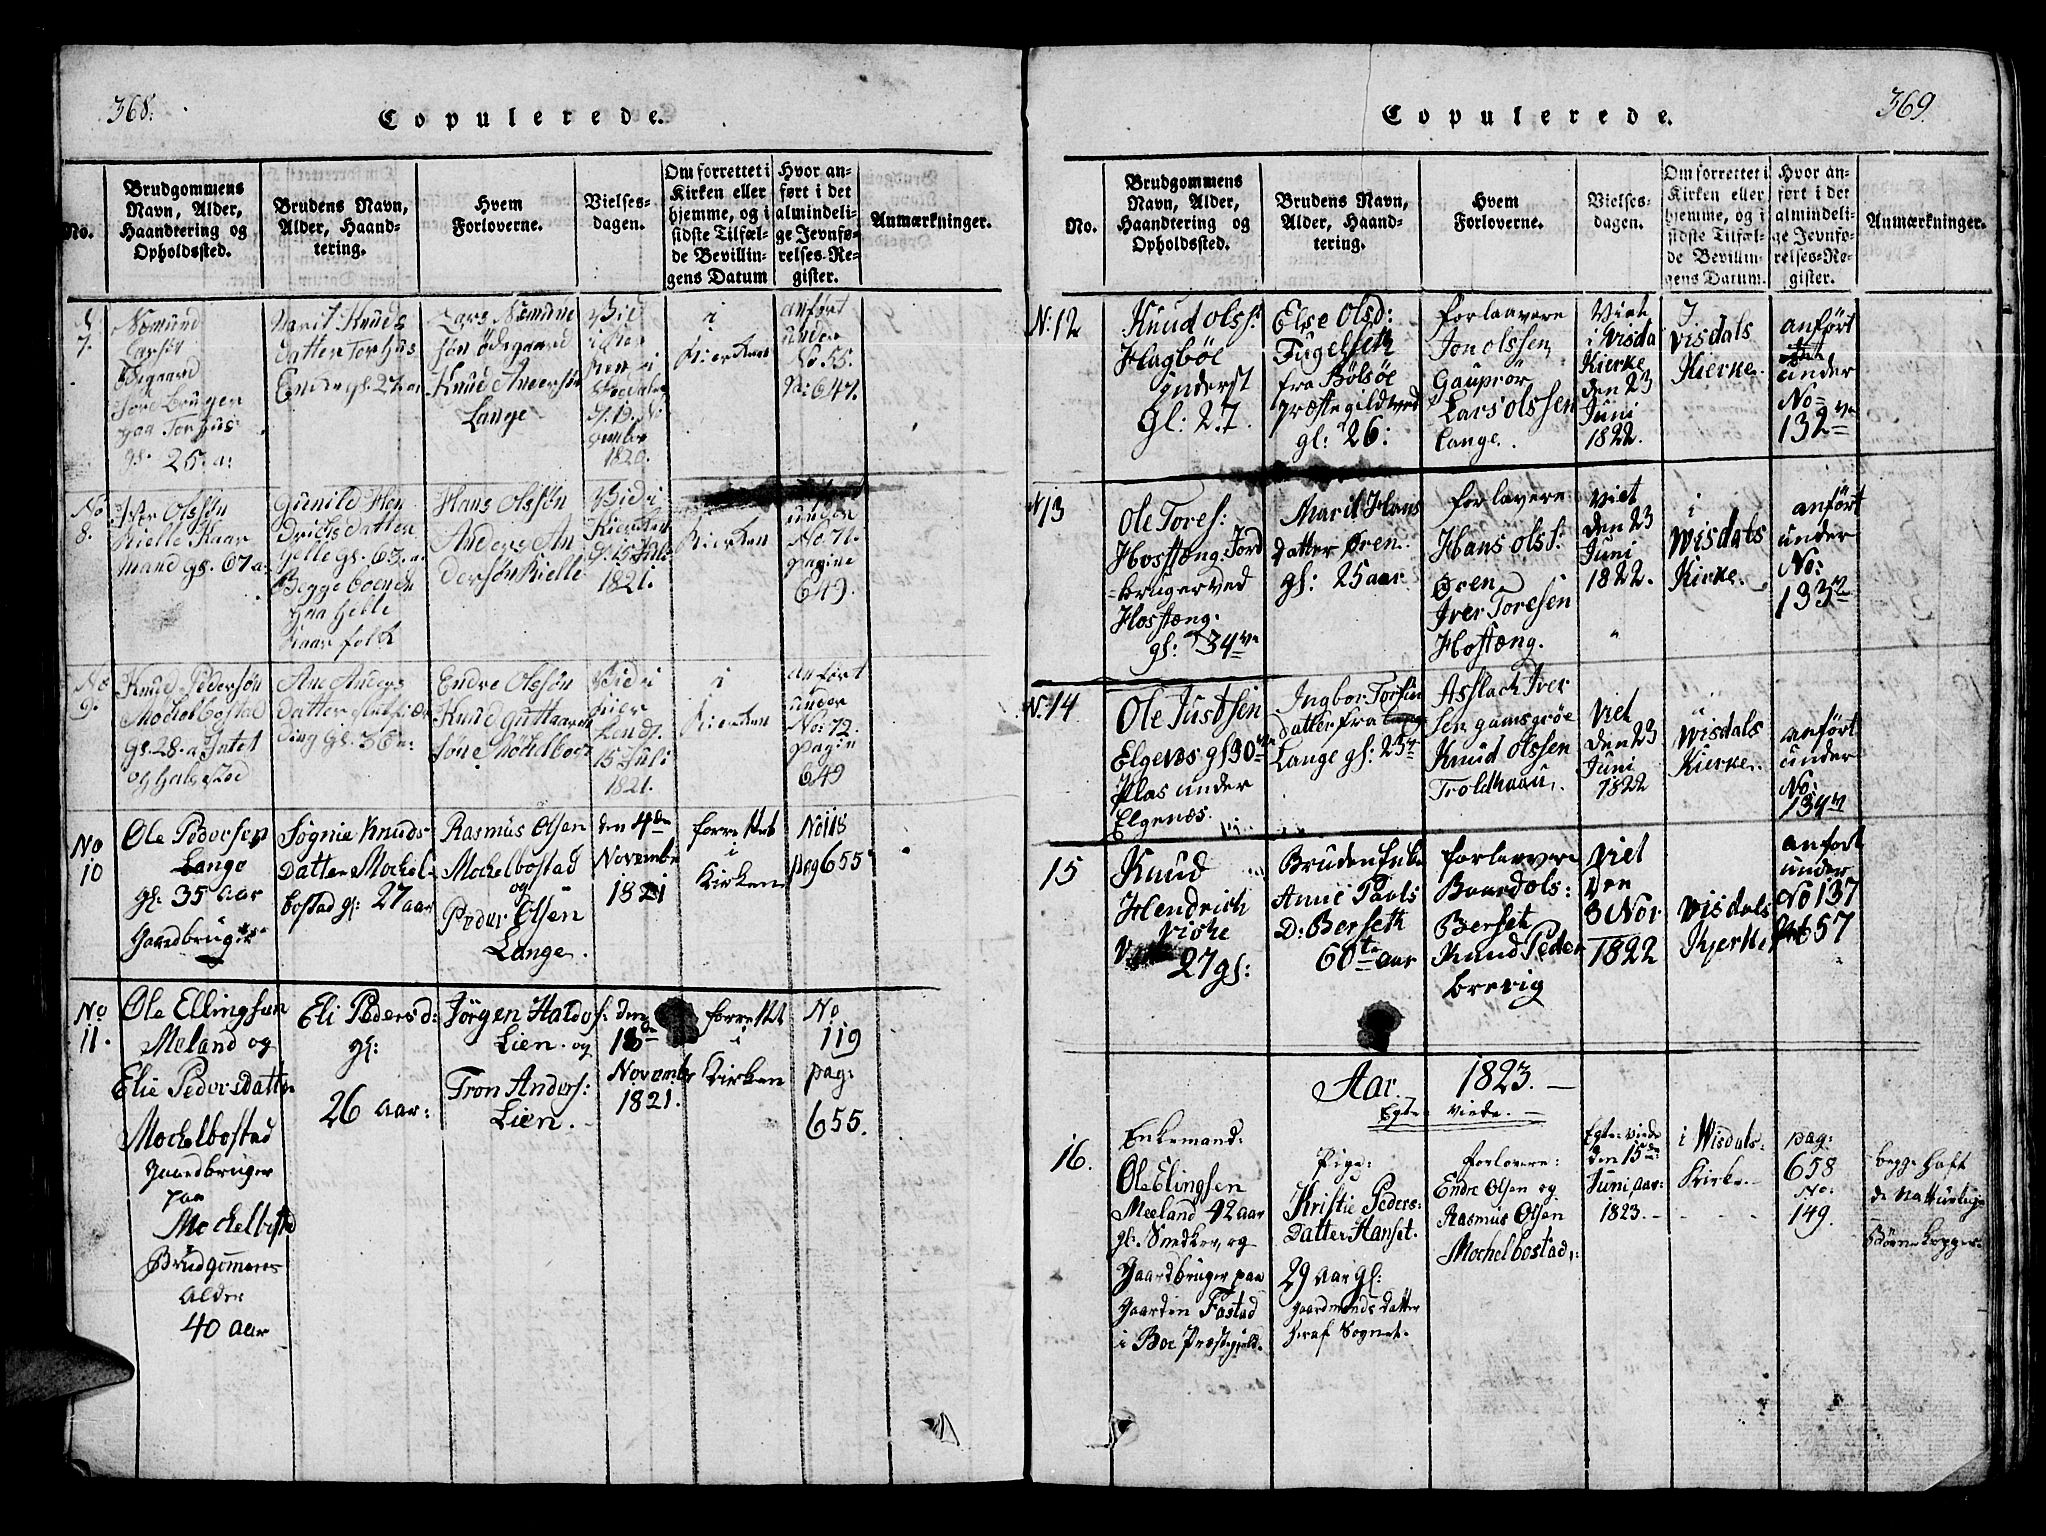 368.
Copulerede.
No.
Brudgommens
Navn, Alder,
Haandtering og
Opholdssted.
Brudens Navn,
Alder, Haand-
tering.
Hvem
Forloverne.
Vielses-
dagen.
Om forrettet i
Kirken eller
hjemme, og i
sidste Tilfæl-
de Bevillin-
gens Datum
Hvor an-
ført i det
almindeli-
ge Jevnfø-
relses-Re-
gister.
Anmærkninger.
7.
Larsøn
Ødegaard
paa Torhus
gl. 25. a:
Marit Knuds
datter Torhus
gl. 27. ar
Lars
søn Ødegaard
Knud Andersøn
Lange
1820.
i
Kierken
anført
under
No. 55.
647.
No
8.
Olssøn
Kaar
mand gl. 67 a.
Gunild Hen
Drichs datter
gl. 63. a:
Begge boende
paa
Kaar folch
Hans Olssøn
Anders An
dersøn
Vied i
Kierken
d. 15 Juli
1821.
i
Kierken
anført
under
No. 71.
pagine
649.
No
9.
Knud Pedersøn
Mochelbostad
gl. 28. a
Ane Anders
datter
gl. 36 a:
Endre Olssøn
Knud
søn Mochelbost
Vied i
kier
ken d.
15 Juli
1821.
i
Kierken
anført
under
No: 72.
pagin
649
No
10
Ole Pedersen
Lange
gl. 35 aar
Gaardbruger
Søgnie Knuds
Datter Mochel-
bostad gl: 27 aar
Rasmus Olsen
Mochelbostad
og
Peder Olsen
Lange.
den 4de
November
1821
forrettet
i
Kirken
No 118
pag 655
No
11.
Ole Ellingsen
Meland og
Elie Pedersdatter
Mochelbostad
Gaardbruger
paa
Mochelbostad
Brudgommens
Alder
40 aar
Eli Pedersd:
gl:
26 aar:
Jørgen Haldos:
Lien. og
Tron Anders:
Lien.
den
18de
November
1821.
forrettet
i
Kirken
No
119
pag:
655.
369.
Copulerede.
No.
Brudgommens
Navn, Alder,
Haandtering og
Opholdssted.
Brudens Navn,
Alder, Haand-
tering.
Hvem
Forloverne.
Vielses-
dagen.
Om forrettet i
Kirken eller
hjemme, og i
sidste Tilfæl-
de Bevillin-
gens Datum.
Hvor an-
ført i det
almindeli-
ge Jevnfø-
relses-Re-
gister.
Anmærkninger.
N: 12
Knud Ols:
Hagbøe
Inderst
Gl: 27.
Else Olsd:
Fugelseth
fra Bolsøe
præstegild
gl: 26:
forlaavere
Jon Olssen
Gauprør
Lars Olssen
Lange.
Viet
i Visda
Kierke
den 23
Juni
1822.
I
Visdals
Kierke.
anført
under
No
132
N 13
Ole Tores:
Hosstæng. Jord
bruger ved
Hosstæng.
gl: 34
Marit Hans
datter Øren.
gl: 25 aar
forlavere
Hans Ols:
Øren
Iver Toresen
Hostæng.
Viet
den 23
Juni
1822.
i
Wisdals
Kirke.
anført
under
No:
133
N. 14
Ole Justsen
Elgenæs gl 30
Plas under
Elgenæs.
Ingbor Torstin
datter fra
Lange gl: 23
Asslach Iver
sen gamsgrøe
Knud Olssen
Troldhaau.
Viet
den 23
Juni
1822
i
Wisdals
Kierke.
anført
under
No:
134
15
Knud
Hendrich
Viche
27 gl:
Bruden Enke
Anne Pavls
D: Berseth
60 aar
forlaavere
Baard Ols:
Berset
Knud Peder
brevig
Viet
den
3 Nov
1822
Visdals
Kjerke
anført
under
No 137
657
Aar. 1823. —
Egte viede. —
16.
Enkemand:
Ole Elingsen
Meeland 42 aar
gl: Snedker, og
Gaardbruger paa
Gaarden Fostad
i Boe Præstegield.
Pige:
Kristie Peders:
Datter Hanset.
29 aar gl:
Gaardmands datter
heraf Sognet.
forlovere:
Endre Olsen og
Rasmus Olsen
Mochelbostad.
Egte viede
den 15de
Juni, aar:
1823. —
i Wisdals
Kirke.
pag:
658
No:
149.
begge haft
de naturlige
Børne kopper.